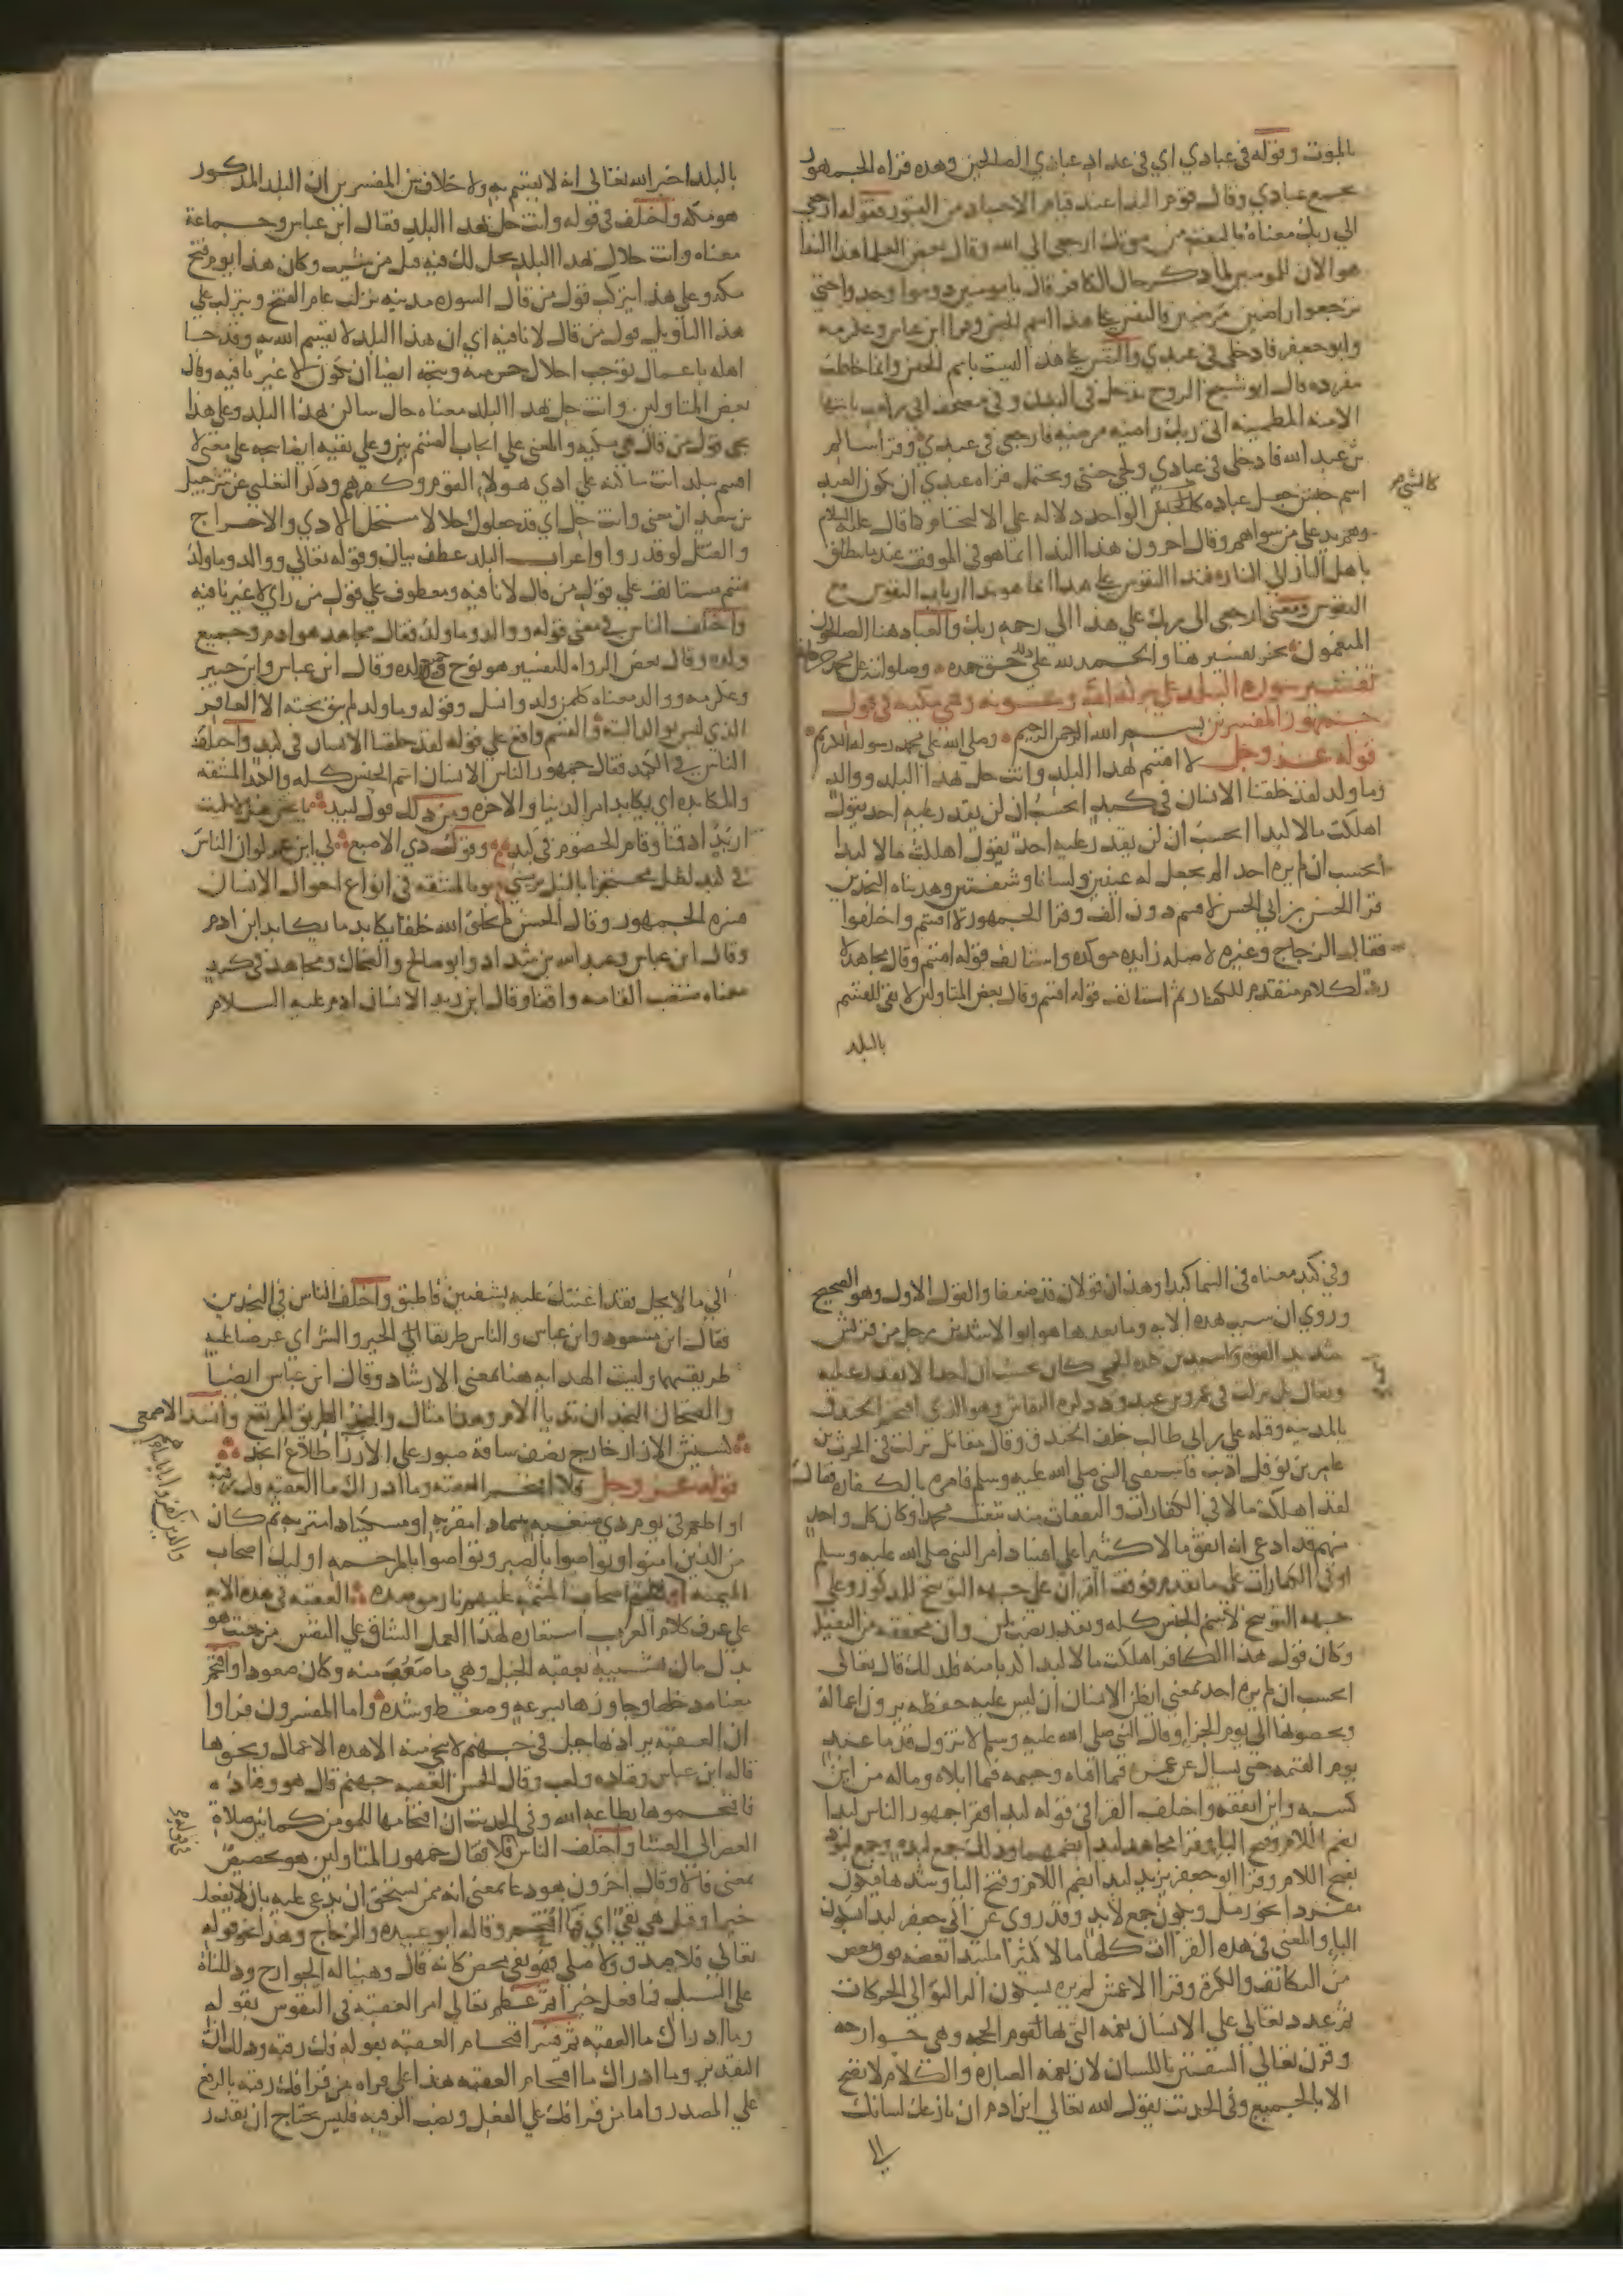 بالموت وقوله في عبادي اي في عداد عبادي الصالحين وهذه قراه الجمهور
بجمع عبادي وقال قوم النداعند قيام الاجساد من القبور فقوله ارجعي
الي ربك معناه بالبعث من موتك ارجعي الى الله وقال بعض العلما هذا الندا
هو الان للمومنين لما ذكر حال الكافر قال يا مومنين دوموا وجدوا حتي
ترجعوا راضين مرضيين فالنفس علي هذا اسم الجنس وقرا ابن عباس وعكرمه
وابو جعفر فادخلي في عبدي والنفس علي هذا ليست باسم الجنس وانما خاطب
مفرده قال ابو شيخ الروح يدخل في البدن وفي مصحف ابي بن كعب يا ايتها
الامنه المطمينه اتي ربك راضيه مرضيه فارجعي في عبدي وقرا سالم
بن عبد الله فادخلي في عبادي ولجي جنتي ويحتمل قراه عبدي ان يكون العبد
اسم جنس جعل عباده كالشي الواحد دلاله علي الالتحام كما قال عليه السلام
كالشي م
وهم يد علي من سواهم وقال اخرون هذا الندا انما هو في الموقف عندما ينطلق
باهل النار الي النار فنداالنفوس علي هذا انما هو ندا ارباب النفوس مع
النفوس ومعنى ارجعي الى ربك علي هذا الي رحمه ربك والعباد هنا الصالحون
المتقمون نجز تفسيرهنا والحمد لله علي ذلك حق حمده وصلواته علي محمد
تفسير سورة البلد علي بركه الله وعونه وهي مكيه في قول
جمهور المفسرين بسم الله الرحمن الرحيم وصلي الله علي محمد رسوله الكريم
قوله عز وجل لا اقسم بهذا البلد وانت حل بهذا البلد ووالد
وما ولد لقد خلقنا الانسان في كبد ايحسب ان لن يقدر عليه احد يقول
اهلكت مالا لبدا ايحسب ان لن يقدر عليه احد يقول اهلكت مالا لبدا
ايحسب ان لم يره احد الم يجعل له عينين ولسانا وشفتين وهديناه النجدين
قرا الحسن بن ابي الحسن لاقسم دون الف وقرا الجمهور لا اقسم واختلفوا
فقال الزجاج وغيره لا صله زايده موكده واستانف قوله اقسم وقال مجاهد لا
رد لكلام متقدم للكفار ثم استانف قوله اقسم وقال بعض المتاولين لا نفي للقسم
بالبلد
بالبلد اخبر الله تعالى انه لا يقسم به ولا خلاف بين المفسرين ان البلد المذكور
هو مكه واختلف في قوله وانت حل بهذا البلد فقال ابن عباس وجماعة
معناه وانت حلال بهذا البلد يحل لك فيه قتل من شيت وكان هذا يوم فتح
مكه وعلي هذا يتركب قول من قال السوره مدنيه نزلت عام الفتح ويتركب علي
هذا التاويل قول من قال لا نافيه اي ان هذا البلد لا يقسم الله به وقد جا
اهله باعمال توجب احلال حرمته ويتجه ايضا ان تكون لا غير نافيه وقال
بعض المتاولين وانت حل بهذا البلد معناه حال ساكن بهذا البلد وعلي هذا
يجي قول من قال هي مكيه والمعنى علي ايجاب القسم بين وعلي نفيه ايضا يتجه علي معنى لا
اقسم ببلد انت ساكنه علي اذي هولاء القوم وكفرهم وذكر الثعلبي عن شرحبيل
بن سعد ان معنى وانت حل اي قد جعلوك حلالا مستحل الاذي والاخراج
والقتل لو قدروا واعراب البلد عطف بيان وقوله تعالي ووالد وما ولد
قسم مستانف علي قول من قال لا نافيه ومعطوف علي قول من راي لا غير نافيه
واختلف الناس في معنى قوله ووالد وما ولد فقال مجاهد هو ادم وجميع
ولده وقال بعض الرواه للتفسير هو نوح وجميع ولده وقال ابن عباس وابن جبير
وعكرمه ووالد معناه كل من ولد وانسل وقوله وما ولد لم يبق تحته الا العاقر
الذي ليس بوالد البتة والقسم واقع علي قوله لقد خلقنا الانسان في كبد واختلف
الناس في الكبد فقال جمهور الناس الانسان اسم الجنس كله والكبد المشقه
والمكابده اي يكابد امر الدنيا والاخره ومن ذلك قول لبيد يا عين هلا بكيت
اربد اذ قمنا وقام الخصوم في كبد وقول ذي الاصبع لي ابن عم لو ان الناس
في كبد لظل محتجزا بالنبل يرميني وبالمشقه في انواع احوال الانسان
فسره الجمهور وقال الحسن لم يخلق الله خلقا يكابد ما يكابد ابن ادم
وقال ابن عباس وعبد الله بن شداد وابو صالح والضحاك ومجاهد في كبد
معناه منتصب القامه واقفا وقال ابن زيد الانسان ادم عليه السلام
وفي كبد معناه في السما كبدا وهذان قولان قد ضعفا والقول الاول وهو الصحيح
وروي ان سبب هذه الايه وما بعدها هو ابو الاشدين رجل من قريش
شديد القوه واسيد بن كلده الجمحي كان يحسب ان احدا لا يقدر عليه
ويقال بل نزلت في عمرو بن عبد ود ذكره النقاش وهو الذي اقتحم الخندق
بالمدينه وقتله علي بن ابي طالب خلف الخندق وقال مقاتل نزلت في الحرث بن
عامر بن نوفل اذنب فاستفتى النبي صلي الله عليه وسلم فامره بالكفاره فقال
لقد اهلكت مالا في الكفارات والنفقات منذ تبعت محمدا وكان كل واحد
منهم قد ادعي انه انفق مالا كثيرا علي افساد امر النبي صلي الله عليه وسلم
او في الكفارات علي ما تقدم فوقف القران علي جهه التوبيخ للمذكور وعلي
جهه التوبيخ لاسم الجنس كله ويقدر نصب لن وان مخففه من الثقيله
وكان قول هذا الكافر اهلكت مالا لبدا كذبا منه فلذلك قال تعالى
ايحسب ان لم يره احد بمعني ايظن الانسان ان ليس عليه حفظه يرون اعماله
ويحصونها الى يوم الجزا وقال النبي صلي الله عليه وسلم لا تزول قدما عبد
يوم القيمه حتي يسال عن عمره فيما افناه وجسمه فيما ابلاه وماله من اين
كسبه واين انفقه واختلف القرا في قوله لبدا فقرا جمهور الناس لبدا
بضم اللام وفتح البا وقرا مجاهد لبدا بضمهما وذلك جمع لبده وجمع لبود
بفتح اللام وقرا ابو جعفر يزيد لبدا بضم اللام وفتح البا وشدها فيكون
مفردا نحو زمل ويكون جمع لابد وقد روي عن ابي جعفر لبدا بسكون
البا والمعنى في هذه القراات كلها مالا كثيرا متلبدا بعضه فوق بعض
من التكاثف والكثره وقرا الاعمش لم يره بسكون الها لتوالي الحركات
ثم عدد تعالي علي الانسان نعمه التي بها تقوم الحجه وهي جوارحه
وقرن تعالي الشفتين باللسان لان نعمه العباره والكلام لا تصح
الا بالجميع وفي الحديث يقول الله تعالي ابن ادم ان نازعك لسانك
الي
الي ما لا يحل فقد اعنتك عليه بشفتين فاطبق واختلف الناس في النجدين
فقال ابن مسعود وابن عباس والناس طريقا الخير والشر اي عرضنا عليه
طريقهما وليست الهدايه هنا بمعنى الارشاد وقال ابن عباس ايضا
والضحاك النجدان ثديا الام وهذا مثال والنجد الطريق المرتفع وانشد الاصمعي
كميش الازار خارج نصف ساقه صبور علي الارزا طلاع انجد
قوله عز وجل فلا اقتحم العقبه وما ادراك ما العقبه فك رقبه
او اطعم في يوم ذي مسغبه يتيما ذا مقربه او مسكينا ذا متربه ثم كان
من الذين امنوا وتواصوا بالصبر وتواصوا بالمرحمه اوليك اصحاب
الميمنه
والذين كفروا باياتنا هم
اصحاب المشئمه عليهم نار موصده العقبه في هذه الايه
علي عرف كلام العرب استعاره لهذا العمل الشاق علي النفس من حيث هو
بذل مال تشبيه بعقبه الجبل وهي ما صعب منه وكان صعودا واقتحم
معناه دخلها وجاوزها بسرعه وضغط وشده واما المفسرون فراوا
ان العقبه يراد بها جبل في جهنم لا ينجي منه الا هذه الاعمال ونحوها
قاله ابن عباس وقتاده وكعب وقال الحسن العقبه جهنم قال هو وقتاده
فاقتحموها بطاعه الله وفي الحديث ان اقتحامها للمومن كما بين صلاة
العصر الى العشا واختلف الناس فلا فقال جمهور المتاولين هو تحضيض
في قوله
بمعنى فالا وقال اخرون هو دعا بمعنى انه ممن يستحق ان يدعي عليه بان لا يفعل
خيرا وقيل هي نفي اي فما اقتحم وقاله ابو عبيده والزجاج وهذا نحو قوله
تعالي فلا صدق ولا صلي فهو نفي محض كانه قال وهبنا له الجوارح ودللناه
علي السبيل فما فعل خيرا ثم عظم تعالي امر العقبه في النفوس بقوله
وما ادراك ما العقبه ثم فسر اقتحام العقبه بقوله فك رقبه وذلك ان
التقدير وما ادراك ما اقتحام العقبه هذا علي قراه من قرا فك رقبه بالرفع
علي المصدر واما من قرا فك علي الفعل ونصب الرقبه فليس يحتاج ان يقدر